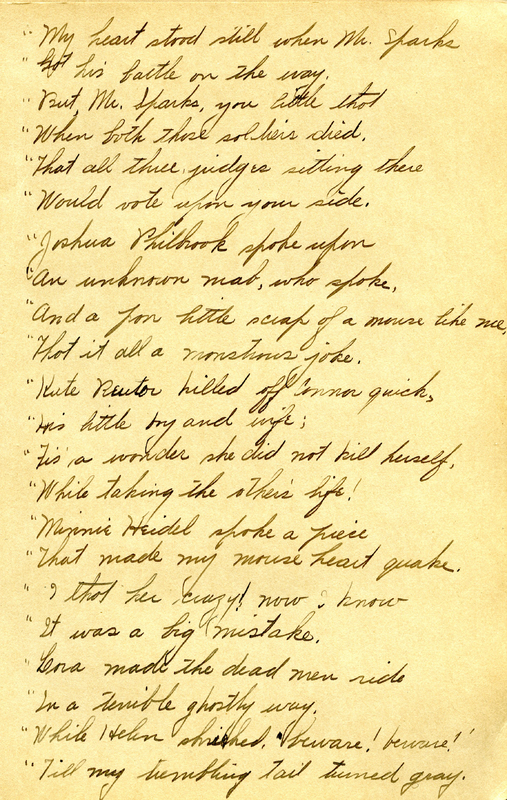 "My heart stood still when Mr. Sparks
"Got his battle on the way.
"But, Mr. Sparks, you little thot
"When both those soldiers died,
"That all three judges sitting there
"Would vote upon your side.
"Joshua Philbrook spoke upon
"An unknown mab, who spoke,
"And a poor little scrap of a mouse like me,
"Thot it all a monstrous joke.
"Kate Reuter killed off Connor quick,
"His little boy and wife;
"Tis' a wonder she did not kill herself,
"While taking the other's life!
"Minnie Heidel spoke a piece
"That made my mouse heart quake.
"I thot her crazy! now I know
"It was a big mistake.
"Cora made the dead men ride
"In a terrible ghostly way,
"While Helen shrieked, "beware! beware!"
"Till my trembling tail turned gray.